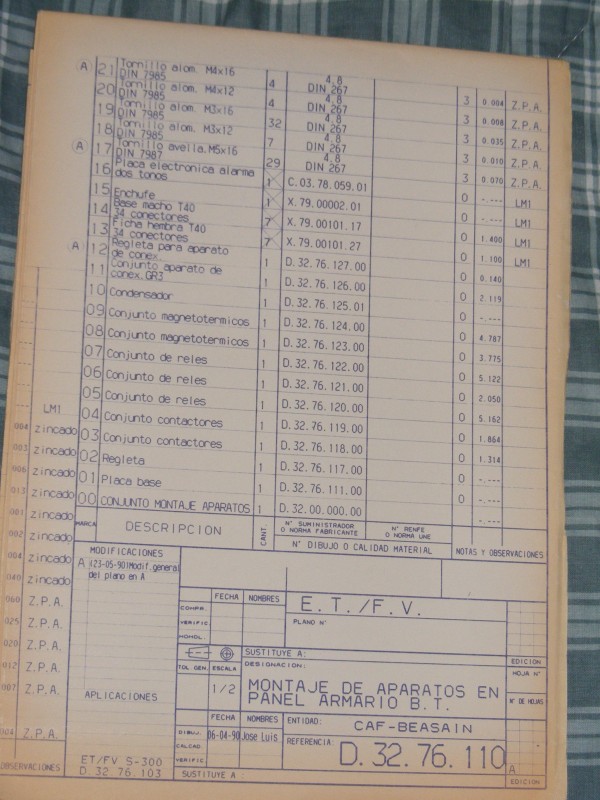 A 21 Tornillo alom. M4x16 4 4,8 3 0.004 Z.P.A.
DIN 7985 DIN 267
20 Tornillo alom. M4x12 4 4,8 3 0.008 Z.P.A.
DIN 7985 DIN 267
19 Tornillo alom. M3x16 32 4,8 3 0.035 Z.P.A.
DIN 7985 DIN 267
18 Tornillo alom. M3x12 7 4,8 3 0.010 Z.P.A.
DIN 7985 DIN 267
A 17 Tornillo avella. M5x16 29 4,8 3 0.070 Z.P.A.
DIN 7987 DIN 267
16 Placa electronica alarma 1 C.03.78.059.01 0 -.--- LM1
dos tonos
15 Enchufe 1 X.79.00002.01 0
14 Base macho T40 7 X.79.00101.17 0 1.400 LM1
34 conectores
13 Ficha hembra T40 7 X.79.00101.27 0 1.100 LM1
34 conectores
A 12 Regleta para aparato 1 D.32.76.127.00 0 0.140
de conex.
11 Conjunto aparato de 1 D.32.76.126.00 0 2.119
conex. GR3
10 Condensador 1 D.32.76.125.01 0 -.---
09 Conjunto magnetotermicos 1 D.32.76.124.00 0 4.787
08 Conjunto magnetotermicos 1 D.32.76.123.00 0 3.775
07 Conjunto de reles 1 D.32.76.122.00 0 5.122
06 Conjunto de reles 1 D.32.76.121.00 0 2.050
05 Conjunto de reles 1 D.32.76.120.00 0 5.162
04 Conjunto contactores 1 D.32.76.119.00 0 1.864
03 Conjunto contactores 1 D.32.76.118.00 0 1.314
02 Regleta 1 D.32.76.117.00 0 -.---
01 Placa base 1 D.32.76.111.00 0 -.---
00 CONJUNTO MONTAJE APARATOS 1 D.32.00.000.00 -.---
MARCA DESCRIPCION CANT. Nº SUMINISTRADOR O NORMA FABRICANTE Nº RENFE O NORMA UNE
Nº DIBUJO O CALIDAD MATERIAL NOTAS Y OBSERVACIONES
LM1
004 zincado
003 zincado
006 zincado
013 zincado
001 zincado
002 zincado
004 zincado
040 zincado
060 Z.P.A.
025 Z.P.A.
020 Z.P.A.
012 Z.P.A.
007 Z.P.A.
004 Z.P.A.
OBSERVACIONES
MODIFICACIONES
A (23-05-90)Modif.general
del plano en A
APLICACIONES
ET/FV S-300
D.32.76.103
FECHA NOMBRES
COMPR.
VERIFIC.
HOMOL.
E.T./F.V.
PLANO Nº
SUSTITUYE A:
EDICION
TOL. GEN. ESCALA
1/2
DESIGNACION:
MONTAJE DE APARATOS EN
PANEL ARMARIO B.T.
HOJA Nº
Nº DE HOJAS
FECHA NOMBRES
DIBUJ. 06-04-90 Jose Luis
CALCAD.
VERIFIC.
ENTIDAD: CAF-BEASAIN
REFERENCIA: D.32.76.110 A
SUSTITUYE A:
EDICION